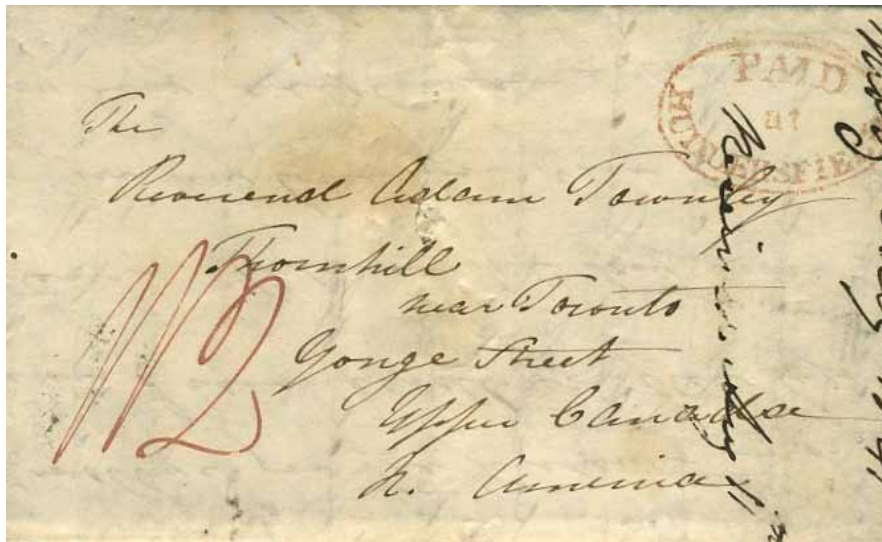 PAID
at
HUDDERSFIELD
The
Reverend Adam Townley
Thornhill
near Toronto
Yonge Street
Upper Canada
N. America
1/2